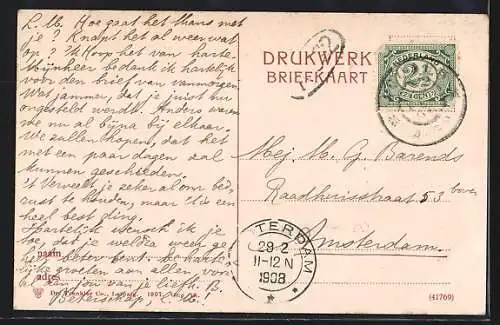 L. M. Hoe gaat het thans met
je? Knapt het al weer wat
op? Ik hoop het van harte.
Mijnheer bedank ik hartelijk
voor den brief van vanmorgen.
Wat jammer, dat je juist nu
ongesteld werdt. Anders waren
we nu al bijna bij elkaar.
We zullen hopen, dat het
met een paar dagen zal
kunnen geschieden.
't Verveelt je zeker al om bed
rust te houden, maar 't is een
heel best ding.
Hartelijk wensch ik je
toe, dat je weldra weer
beter bent.
groeten aan allen, voor
al aan jou van je liefh. B.
naam
adres
Dr. Trenkler Co., Leipzig. 1907.
DRUKWERK
BRIEFKAART
NEDERLAND
2½
CENT
Mej. M. G. Barends
Raadhuisstraat 53 boven
Amsterdam.
STERDAM
29 2
11-12 N
1908
(41769)